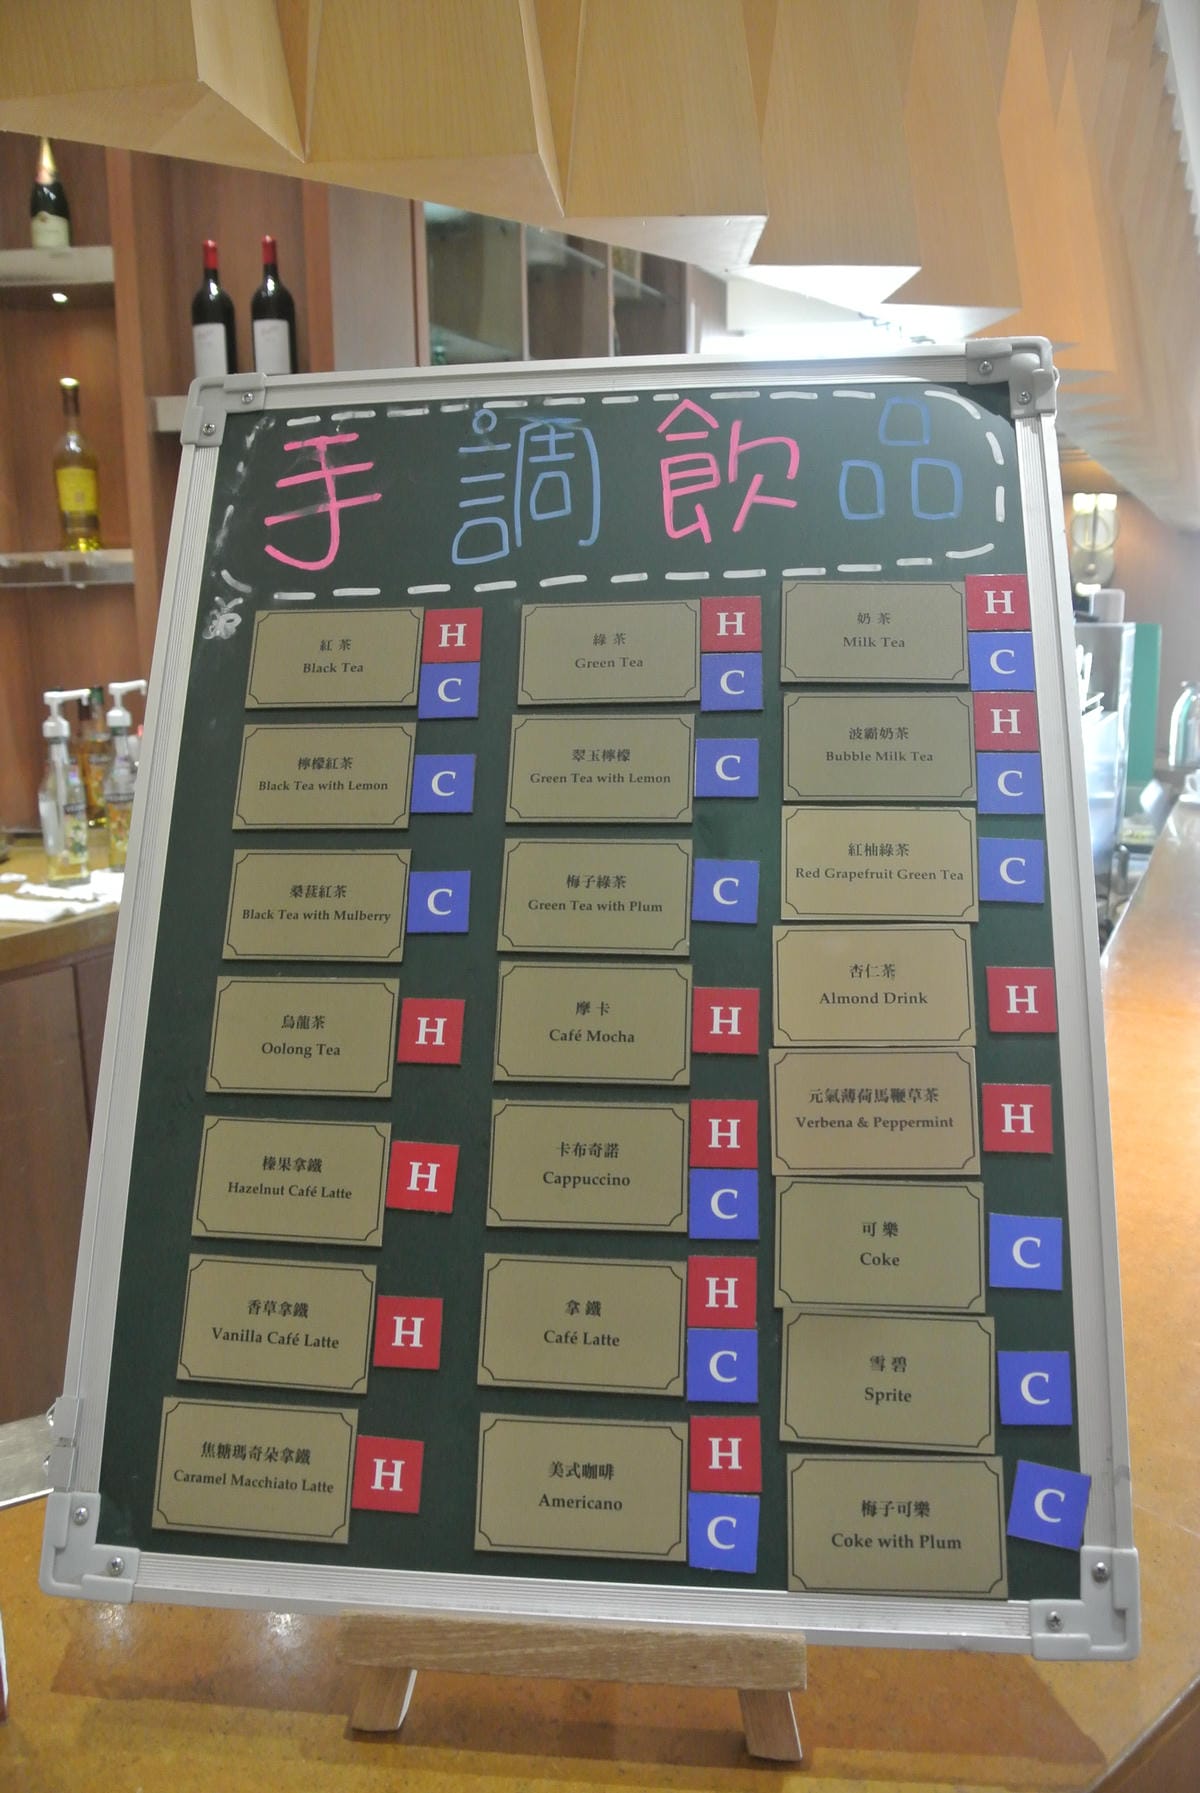 手調飲品
紅茶
Black Tea
H
C
檸檬紅茶
Black Tea with Lemon
C
桑葚紅茶
Black Tea with Mulberry
C
烏龍茶
Oolong Tea
H
榛果拿鐵
Hazelnut Café Latte
H
香草拿鐵
Vanilla Café Latte
H
焦糖瑪奇朵拿鐵
Caramel Macchiato Latte
H
綠茶
Green Tea
H
C
翠玉檸檬
Green Tea with Lemon
C
梅子綠茶
Green Tea with Plum
C
摩卡
Café Mocha
H
卡布奇諾
Cappuccino
H
C
拿鐵
Café Latte
H
C
美式咖啡
Americano
H
C
奶茶
Milk Tea
H
C
波霸奶茶
Bubble Milk Tea
H
C
紅柚綠茶
Red Grapefruit Green Tea
C
杏仁茶
Almond Drink
H
元氣薄荷馬鞭草茶
Verbena & Peppermint
H
可樂
Coke
C
雪碧
Sprite
C
梅子可樂
Coke with Plum
C